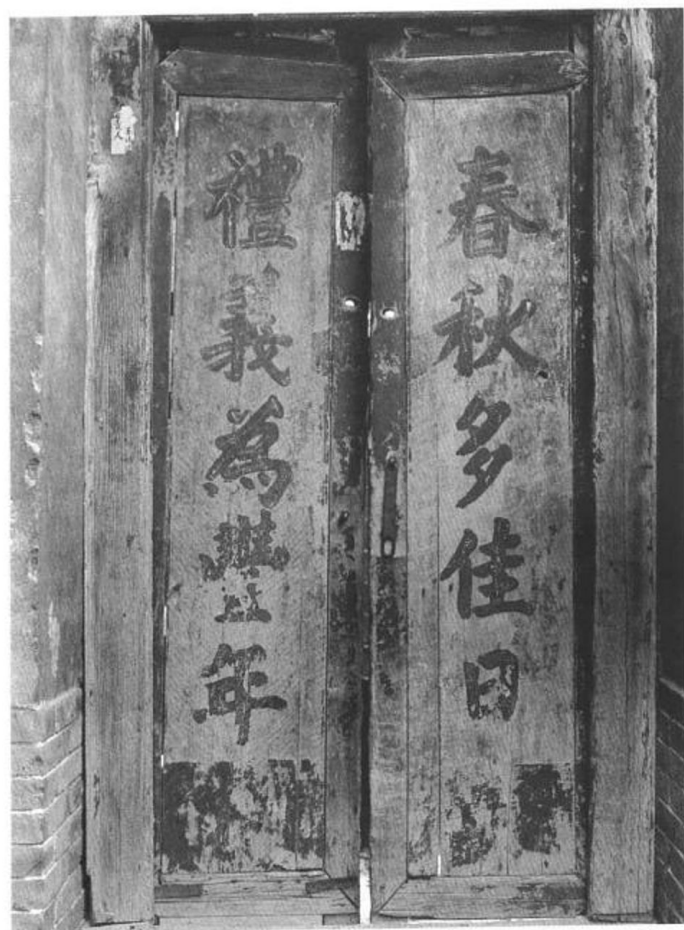 春秋多佳日
禮義為豐年